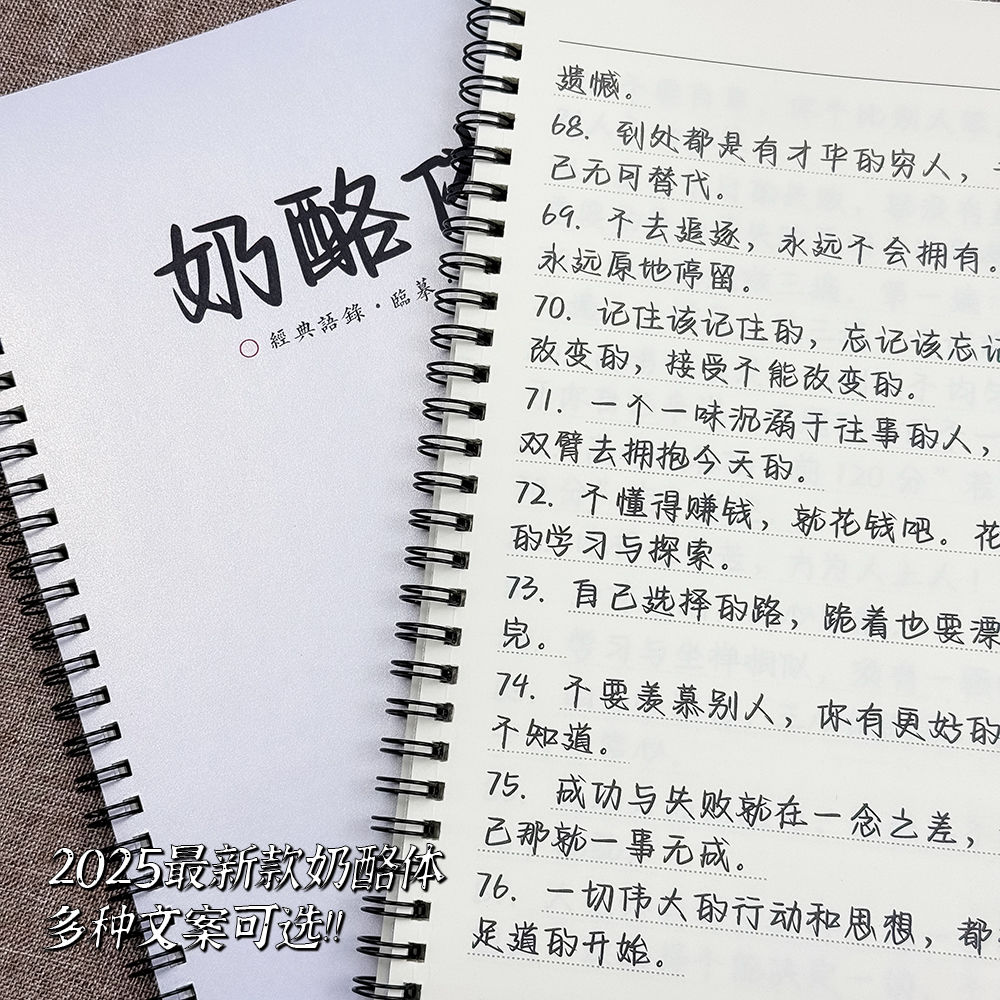 奶酪
經典語錄·臨摹
遗憾。
68. 到处都是有才华的穷人，
己无可替代。
69. 不去追逐，永远不会拥有。
永远原地停留。
70. 记住该记住的，忘记该忘记
改变的，接受不能改变的。
71. 一个一味沉溺于往事的人，
双臂去拥抱今天的。
72. 不懂得赚钱，就花钱吧。花
的学习与探索。
73. 自己选择的路，跪着也要漂
完。
74. 不要羡慕别人，你有更好的
不知道。
75. 成功与失败就在一念之差，
己那就一事无成。
76. 一切伟大的行动和思想，都
足道的开始。
2025最新款奶酪体
多种文案可选!!